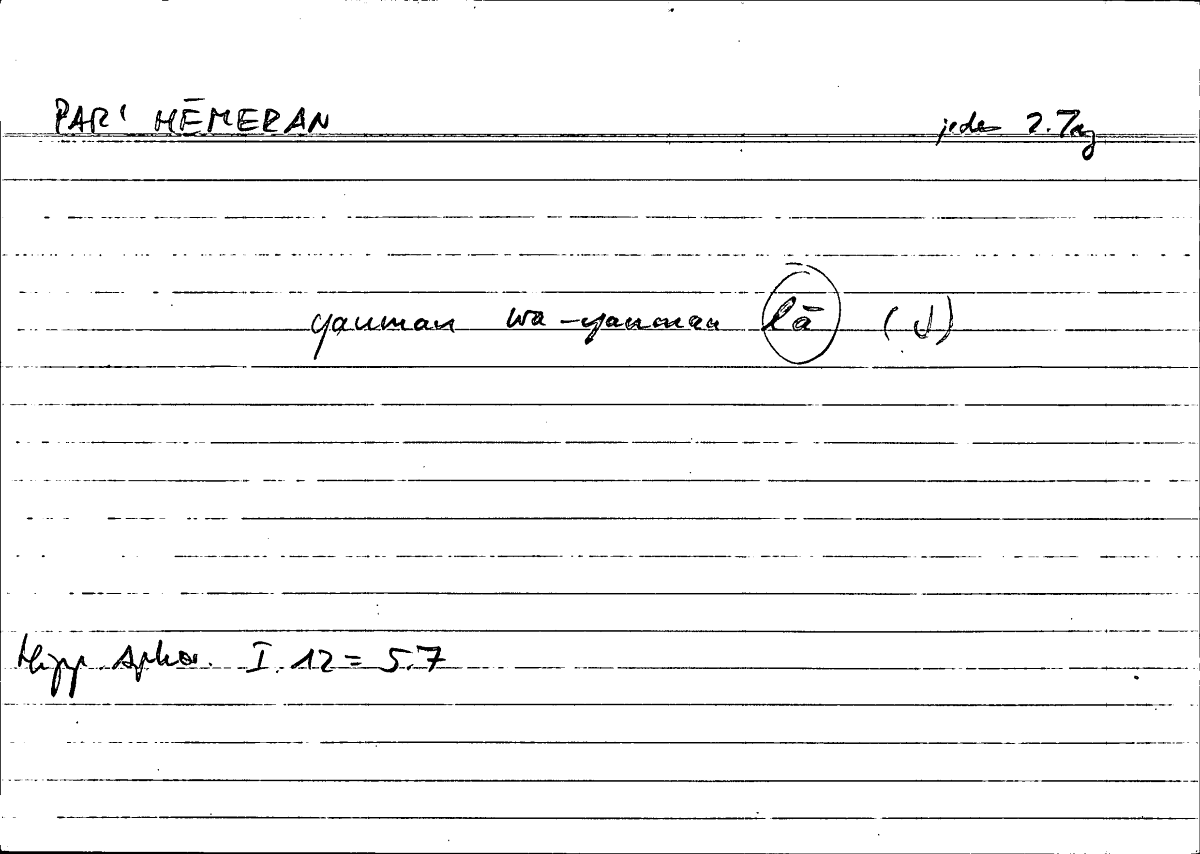 PAR' HĒMERAN jeder 2. Tag
yauman wa-yauman lā (لا)
Hipp. Aphor. I. 12 = 5.7